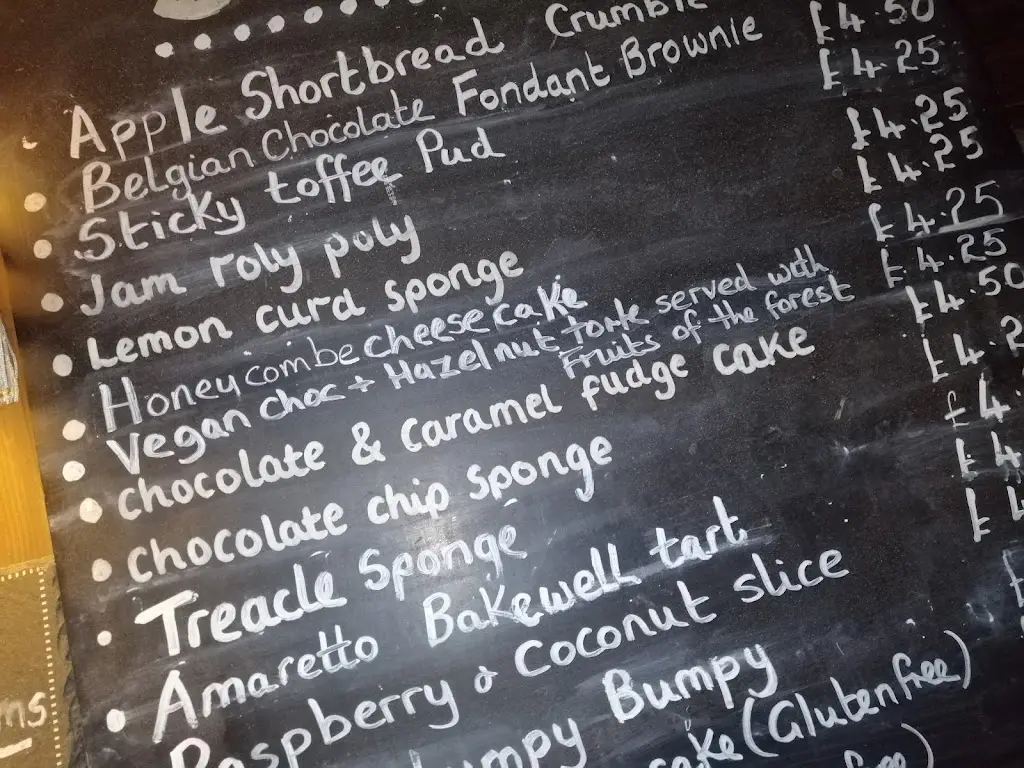 Apple Shortbread Crumble £4.50
Belgian Chocolate Fondant Brownie £4.25
Sticky toffee Pud £4.25
Jam roly poly £4.25
Lemon curd sponge £4.25
Honey combe cheese cake £4.25
Vegan choc + Hazelnut Torte served with £4.50
Fruits of the forest
chocolate & caramel fudge cake £4.2
chocolate chip sponge £4.
Treacle Sponge £4
Amaretto Bakewell tart £4
Raspberry & Coconut slice £
umpy Bumpy
cake (Gluten free)
ms